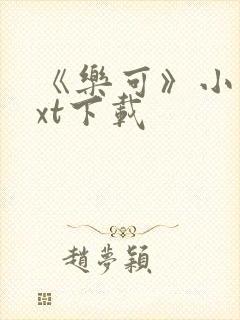 《樂可》小
xt下載
趙夢穎